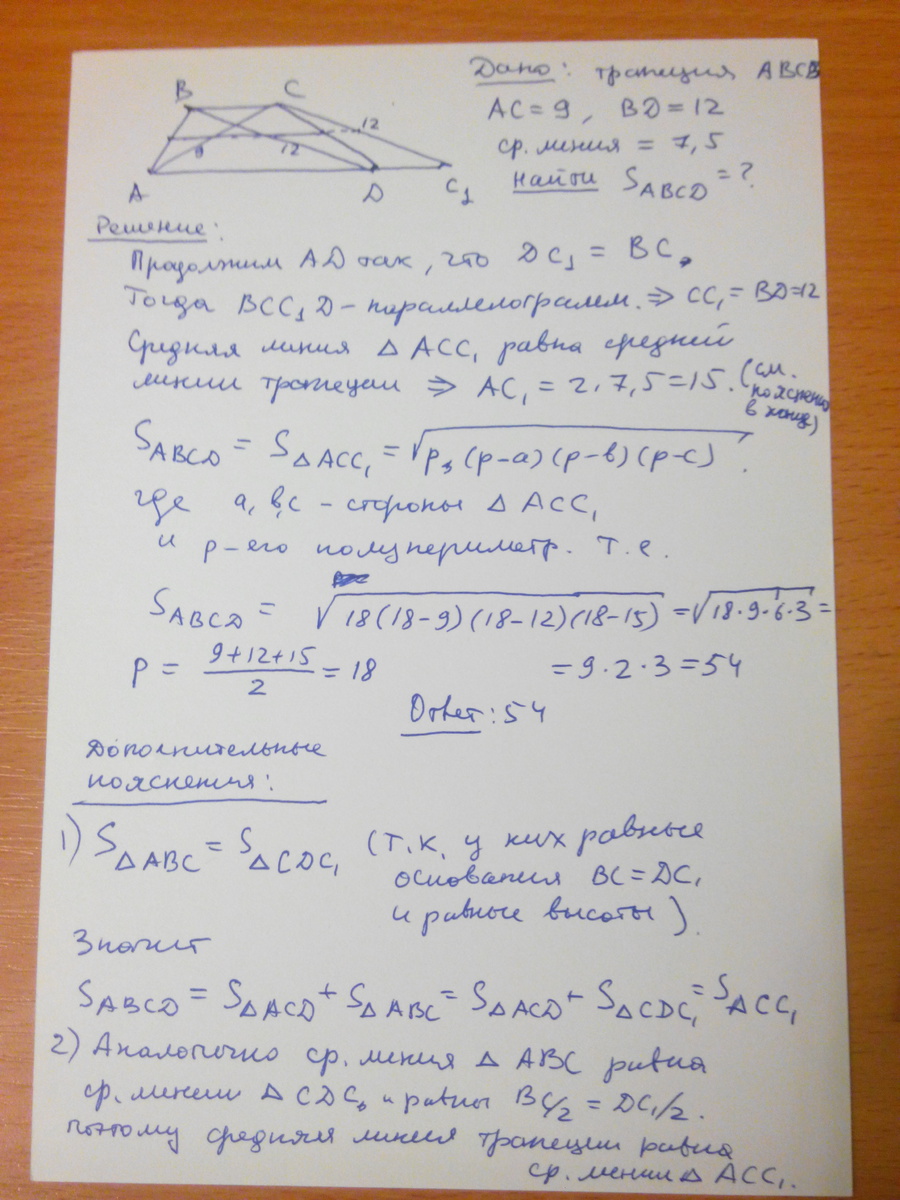 B C
Дано: трапеция ABCD
AC = 9, BD = 12
ср. линия = 7,5
Найти S_ABCD = ?
9 12 12
A D C₁
Решение:
Продолжим AD так, что DC₁ = BC.
Тогда BCC₁D – параллелограмм. ⇒ CC₁ = BD = 12
Средняя линия △ ACC₁ равна средней
линии трапеции ⇒ AC₁ = 2·7,5 = 15. (см. пояснение в конце)
S_ABCD = S_△ACC₁ = √(p·(p-a)(p-в)(p-c)).
где a, в, c – стороны △ ACC₁
и p – его полупериметр. Т.е.
S_ABCD = √(18(18-9)(18-12)(18-15)) = √(18·9·6·3) =
p = (9+12+15)/2 = 18 = 9·2·3 = 54
Ответ: 54
Дополнительные
пояснения:
1) S_△ABC = S_△CDC₁ (т.к. у них равные
основания BC = DC₁
и равные высоты).
Значит
S_ABCD = S_△ACD + S_△ABC = S_△ACD + S_△CDC₁ = S_△ACC₁
2) Аналогично ср. линия △ ABC равна
ср. линии △ CDC₁ и равны BC/2 = DC₁/2.
поэтому средняя линия трапеции равна
ср. линии △ ACC₁.